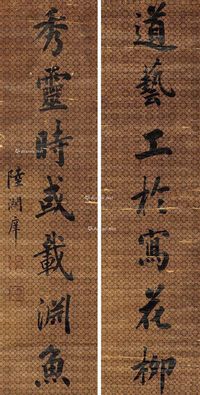 道藝工於寫花柳
秀靈時或載淵魚
陸潤庠